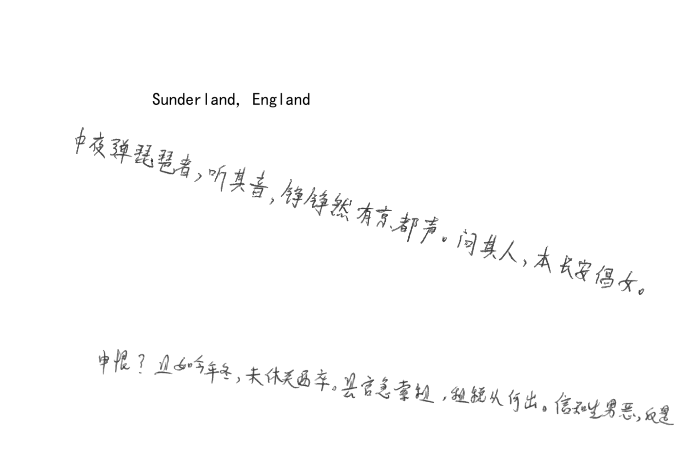 Sunderland, England
中夜弹琵琶者，听其音，铮铮然有京都声。问其人，本长安倡女。
申恨？且如今年冬，未休关西卒。县官急索租，租税从何出。信知生男恶，反是